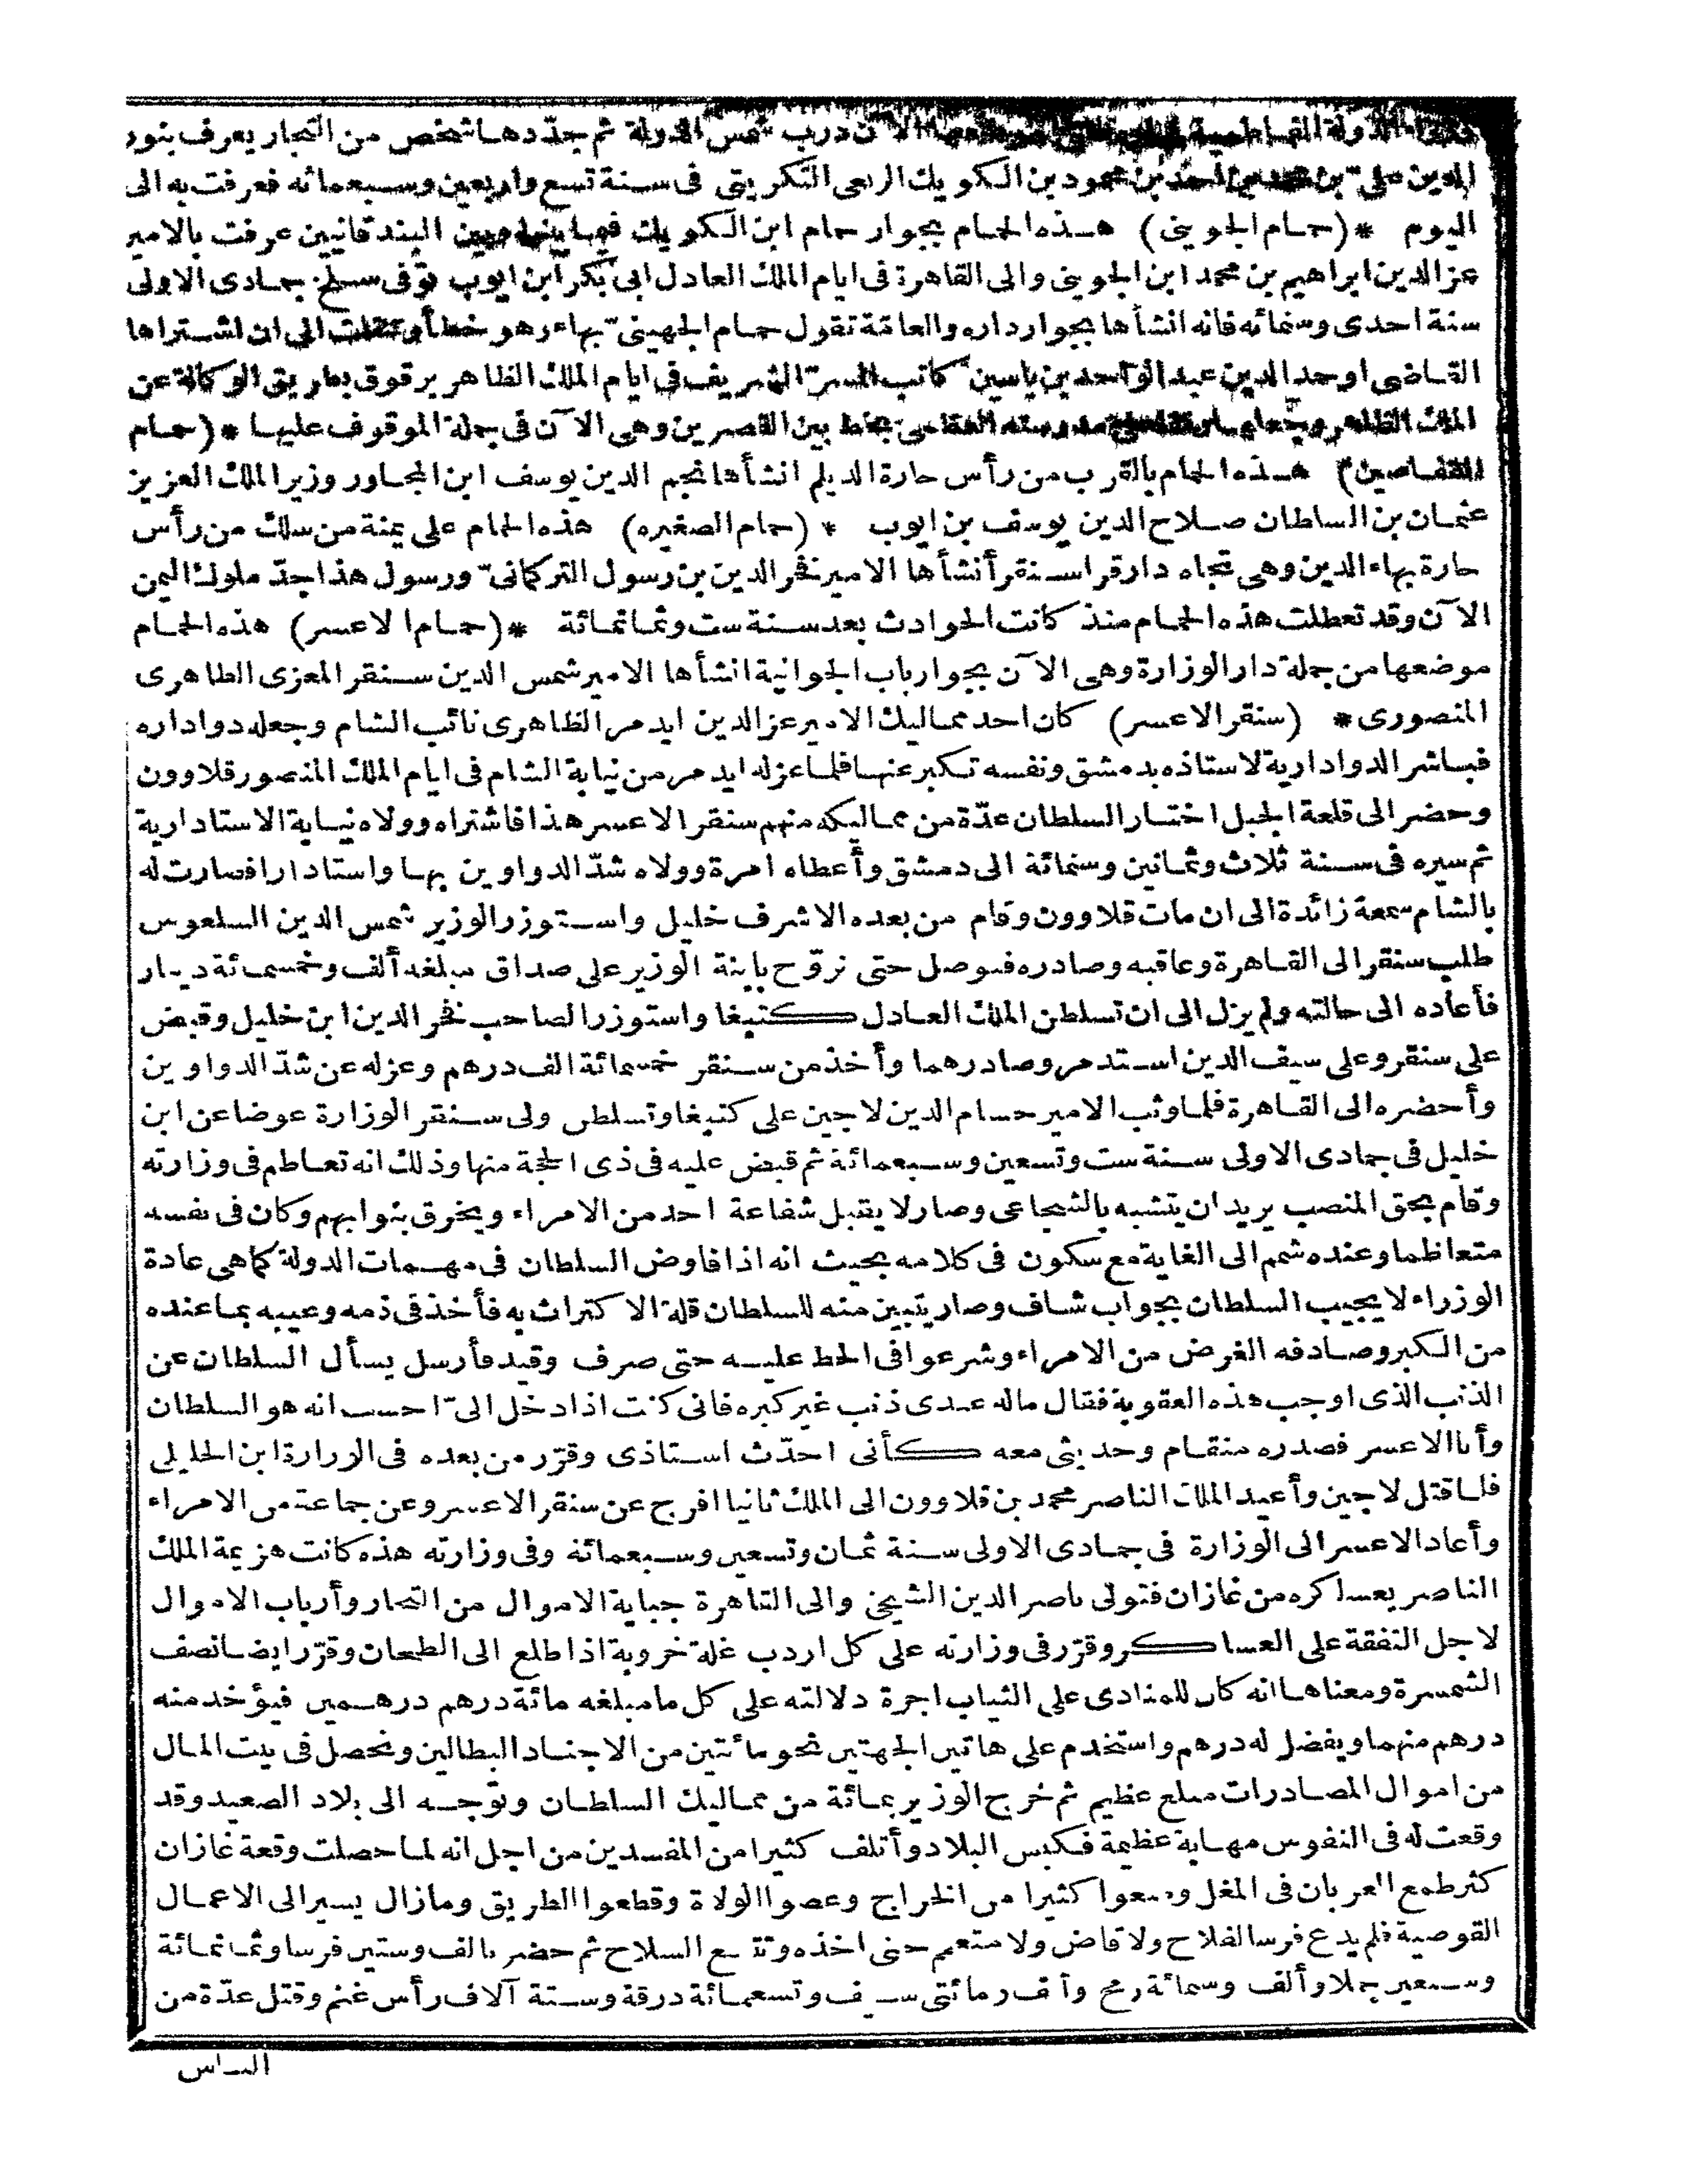 الدولة الفاطمية الآن درب شمس الدولة ثم جدّدها شخص من التجار يعرف بنور
الدين علىّ بن محمد بن أحمد بن محمود بن الكويك الربعى التكريتى فى سنة تسع واربعين وسبعمائه فعرفت به الى
اليوم * (حمام الجوينى) هذه الحمام بجوار حمام ابن الكويك فيما بينها وبين البندقانيين عرفت بالامير
عز الدين ابراهيم بن محمد ابن الجوينى والى القاهرة فى ايام الملك العادل ابى بكر ابن ايوب توفى سلخ جمادى الاولى
سنة احدى وستمائه فانه انشأها بجوار داره والعامّة تقول حمام الجهينىّ بهاء وهو خطأ وتنقلت الى ان اشتراها
القاضى اوحد الدين عبد الواحد بن ياسين كاتب السرّ الشريف فى ايام الملك الظاهر برقوق بطريق الوكالة عن
الملك الظاهر وجعلها مدرسته العظمى بخط بين القصرين وهى الآن فى جملة الموقوف عليها * (حمام
القفاصين) هذه الحمام بالقرب من رأس حارة الديلم انشأها نجم الدين يوسف ابن المجاور وزير الملك العزيز
عثمان بن السلطان صلاح الدين يوسف بن ايوب * (حمام الصغيره) هذه الحمام على يمنة من سلك من رأس
حارة بهاء الدين وهى تجاه دار قراسنقر أنشأها الامير فخر الدين بن رسول التركمانىّ ورسول هذا جدّ ملوك اليمن
الآن وقد تعطلت هذه الحمام منذ كانت الحوادث بعد سنة ست وثمانمائة * (حمام الاعسر) هذه الحمام
موضعها من جملة دار الوزارة وهى الآن بجوار باب الجوانية انشأها الامير شمس الدين سنقر المعزى الظاهرى
المنصورى * (سنقر الاعسر) كان احد مماليك الامير عز الدين ايدمر الظاهرى نائب الشام وجعله دواداره
فباشر الدوادارية لاستاذه بدمشق ونفسه تكبر عنها فلما عزله ايدمر من نيابة الشام فى ايام الملك المنصور قلاوون
وحضر الى قلعة الجبل اختار السلطان عدّة من مماليكه منهم سنقر الاعسر هذا فاشتراه وولاه نيابة الاستادارية
ثم سيره فى سنة ثلاث وثمانين وستمائة الى دمشق وأعطاه امرة وولاه شدّ الدواوين بها واستادارا فصارت له
بالشام سمعة زائدة الى ان مات قلاوون وقام من بعده الاشرف خليل واستوزر الوزير شمس الدين السلعوس
طلب سنقر الى القاهرة وعاقبه وصادره فوصل حتى تزوّج بابنة الوزير على صداق مبلغه ألف وخمسمائة دينار
فأعاده الى حالته ولم يزل الى ان تسلطن الملك العادل كتبغا واستوزر الصاحب فخر الدين ابن خليل وقبض
على سنقر وعلى سيف الدين استدمر وصادرهما وأخذ من سنقر خمسمائة الف درهم وعزله عن شدّ الدواوين
وأحضره الى القاهرة فلما وثب الامير حسام الدين لاجين على كتبغا وتسلطن ولى سنقر الوزارة عوضا عن ابن
خليل فى جمادى الاولى سنة ست وتسعين وسبعمائة ثم قبض عليه فى ذى الحجة منها وذلك انه تعاظم فى وزارته
وقام بحق المنصب يريد ان يتشبه بالشجاعى وصار لا يقبل شفاعة احد من الامراء ويخرق بنوابهم وكان فى نفسه
متعاظما وعنده شمم الى الغاية مع سكون فى كلامه بحيث انه اذا فاوض السلطان فى مهمات الدولة كما هى عادة
الوزراء لا يجيب السلطان بجواب شاف وصار يتبين منه للسلطان قلة الاكتراث به فأخذ فى ذمه وعيبه بما عنده
من الكبر وصادفه الغرض من الامراء وشرعوا فى الحط عليه حتى صرف وقيد فأرسل يسأل السلطان عن
الذنب الذى اوجب هذه العقوبة فقال ماله عندى ذنب غير كبره فانى كنت اذا دخل الىّ احسب انه هو السلطان
وأنا الاعسر فصدره منقام وحديثى معه كأنى احدّث استاذى وقرّر من بعده فى الوزارة ابن الخليلى
فلما قتل لاجين وأعيد الملك الناصر محمد بن قلاوون الى الملك ثانيا افرج عن سنقر الاعسر وعن جماعة من الامراء
وأعاد الاعسر الى الوزارة فى جمادى الاولى سنة ثمان وتسعين وسبعمائة وفى وزارته هذه كانت هزيمة الملك
الناصر بعساكره من غازان فتولى ناصر الدين الشيخى والى القاهرة جباية الاموال من التجار وأرباب الاموال
لاجل النفقة على العساكر وقرّر فى وزارته على كل اردب غلة خروبة اذا طلع الى الطحان وقرّر ايضا نصف
الشمسرة ومعناها انه كان للمنادى على الثياب اجرة دلالته على كل ما مبلغه مائة درهم درهمين فيؤخذ منه
درهم منهما ويفضل له درهم واستخدم على هاتين الجهتين نحو مائتين من الاجناد البطالين وتحصل فى بيت المال
من اموال المصادرات مبلغ عظيم ثم خرج الوزير بمائة من مماليك السلطان وتوجه الى بلاد الصعيد وقد
وقعت له فى النفوس مهابة عظيمة فكبس البلاد وأتلف كثيرا من المفسدين من اجل انه لما حصلت وقعة غازان
كثر طمع العربان فى المغل ومنعوا كثيرا من الخراج وعصوا الولاة وقطعوا الطريق وما زال يسير الى الاعمال
القوصية فلم يدع فرسا لفلاح ولا قاض ولا متعمم حتى اخذه وتتبع السلاح ثم حضر بالف وستين فرسا وثمانمائة
وسبعين جملا وألف وستمائة رمح وألف ومائتى سيف وتسعمائة درقة وستة آلاف رأس غنم وقتل عدّة من
الناس